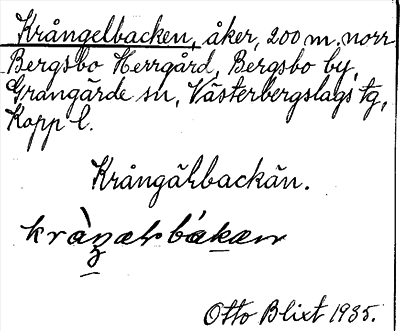 Krångelbacken, åker, 200 m. norr
Bergsbo Herrgård, Bergsbo by,
Grangärde sn, Västerbergslags tg,
Kopp l.
Krångäɫbackän.
Otto Blixt 1935.